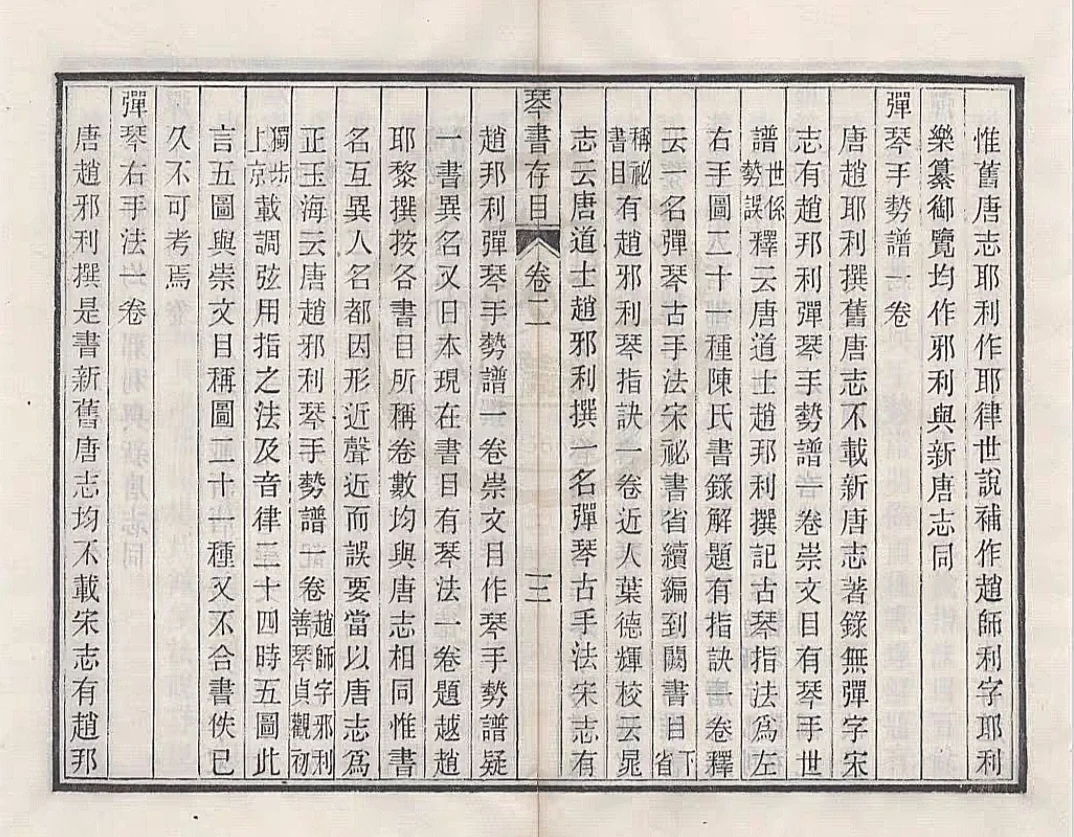 惟舊唐志耶利作耶律世說補作趙師利字耶利
樂纂御覽均作邪利與新唐志同
彈琴手勢譜一卷
唐趙耶利撰舊唐志不載新唐志著錄無彈字宋
志有趙邦利彈琴手勢譜壹卷崇文目有琴手世
譜世係勢誤釋云唐道士趙邦利撰記古琴指法爲左
右手圖二十一種陳氏書錄解題有指訣一卷釋
云一名彈琴古手法宋祕書省續編到闕書目下省
稱祕書目有趙邪利琴指訣一卷近人葉德輝校云晁
志云唐道士趙邪利撰一名彈琴古手法宋志有
琴書存目 卷二 三
趙邦利彈琴手勢譜一卷崇文目作琴手勢譜疑
一書異名又日本現在書目有琴法一卷題越趙
耶黎撰按各書目所稱卷數均與唐志相同惟書
名互異人名都因形近聲近而誤要當以唐志爲
正玉海云唐趙邪利琴手勢譜一卷趙師字邪利善琴貞觀初
獨步上京載調弦用指之法及音律二十四時五圖此
言五圖與崇文目稱圖二十一種又不合書佚已
久不可考焉
彈琴右手法一卷
唐趙邪利撰是書新舊唐志均不載宋志有趙邦